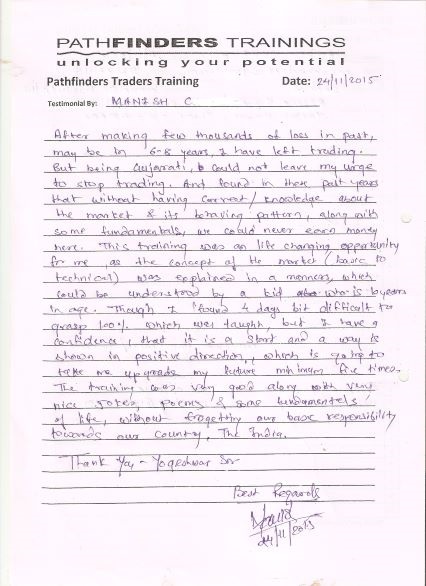 PATHFINDERS TRAININGS
unlocking your potential
Pathfinders Traders Training Date: 24/11/2015
Testimonial By: MANISH C.
After making few thousands of loss in past,
may be in 6-8 years, I have left trading.
But being Gujarati, I could not leave my urge
to stop trading. And found in these past years
that without having correct / knowledge about
the market & its behaving pattern, along with
some fundamentals, we could never earn money
here. This training was an life changing opportunity
for me as the concept of the market (basic to
technical) was explained in a manners, which
could be understood by a kid who is 10 years
in age. Though I found 4 days bit difficult to
grasp 100% which was taught, but I have a
confidence, that it is a start and a way is
shown in positive direction, which is going to
take me upgrade my future minimum five times.
The training was very good along with very
nice jokes, poems & some fundamentals
of life, without frogetting our base responsibility
towards our country, The India.
Thank You - Yogeshwar Sir
Best Regards
24/11/2015